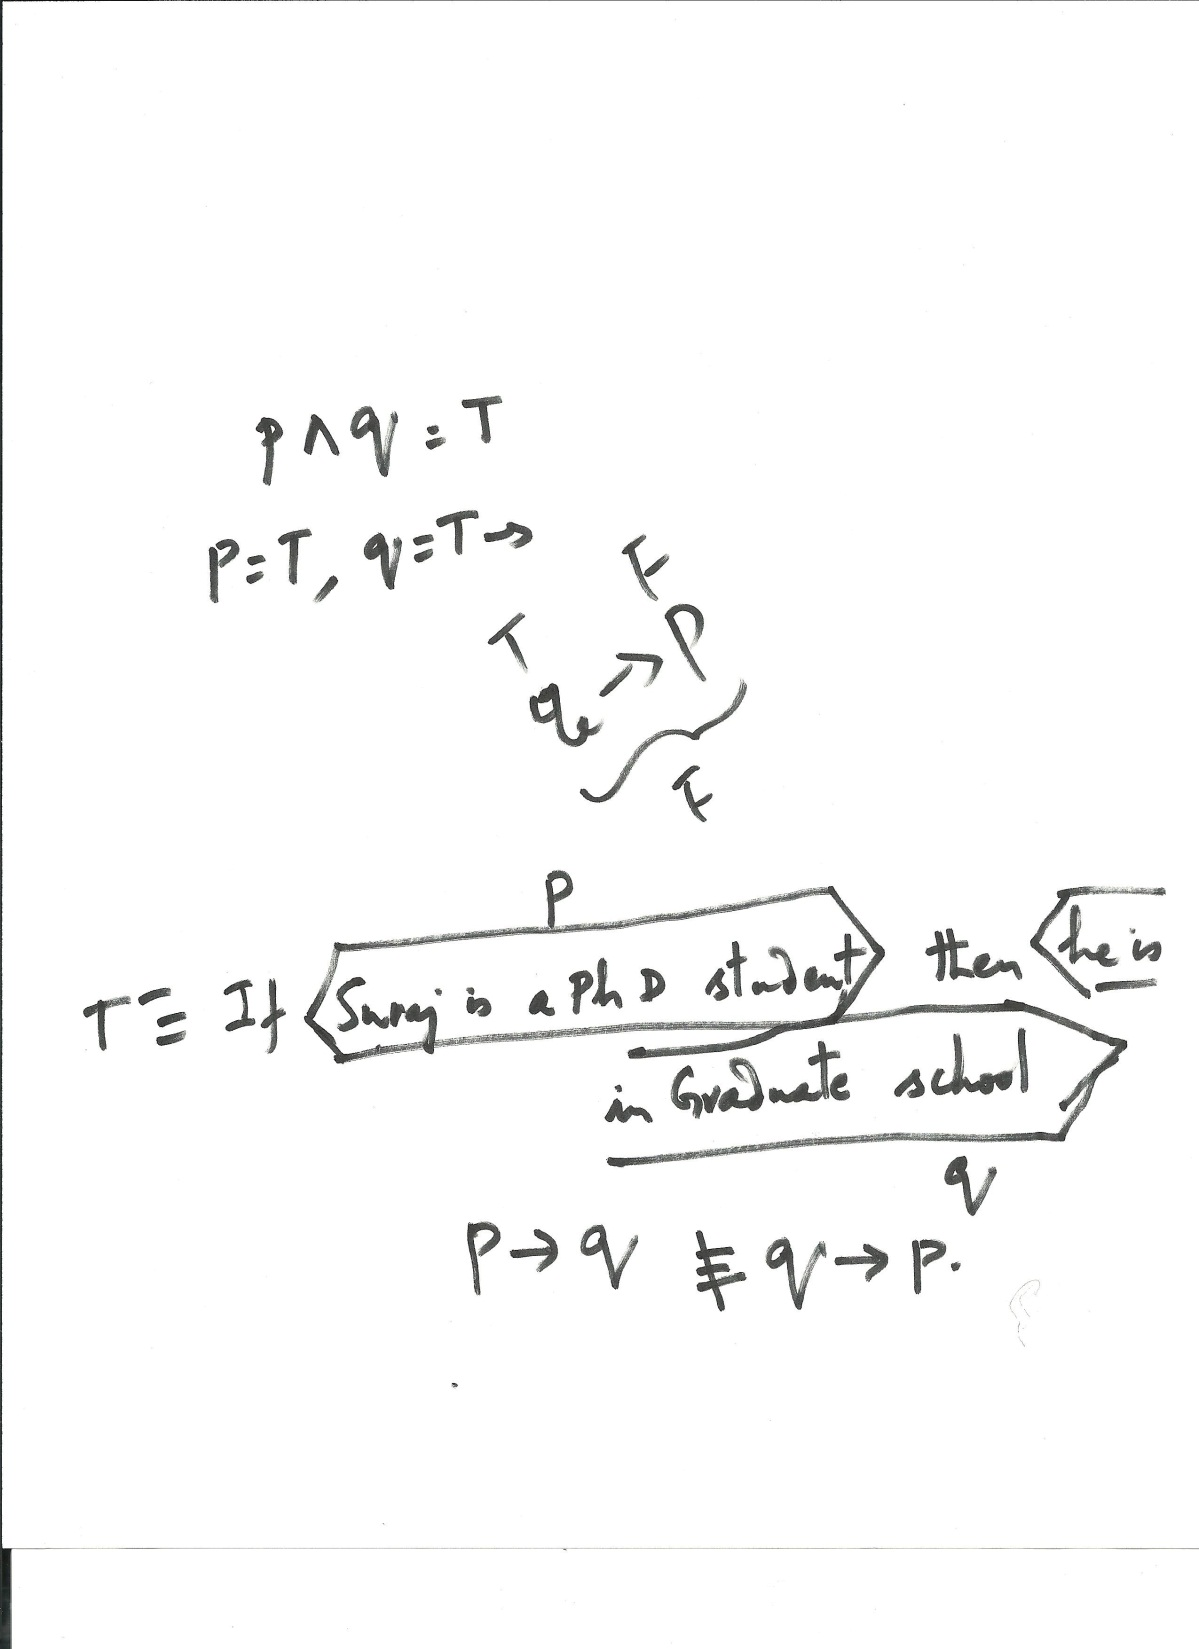 p ∧ q = T
P = T, q = T →
T F
q → P
F
P
T ≡ If Suraj is a PhD student then he is
in Graduate school
q
P → q ≢ q → P.